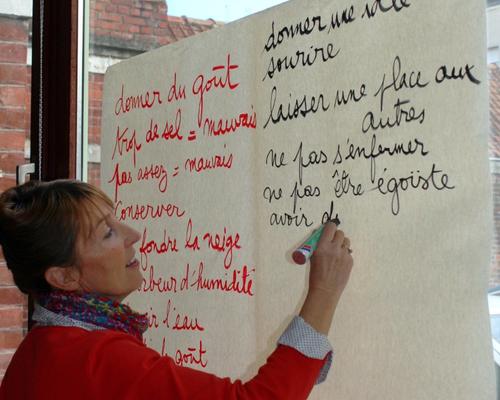 donner du goût
trop de sel = mauvais
pas assez = mauvais
conserver
fondre la neige
d'humidité
l'eau
goût
donner une idée
sourire
laisser une place aux
autres
ne pas s'enfermer
ne pas être égoïste
avoir d